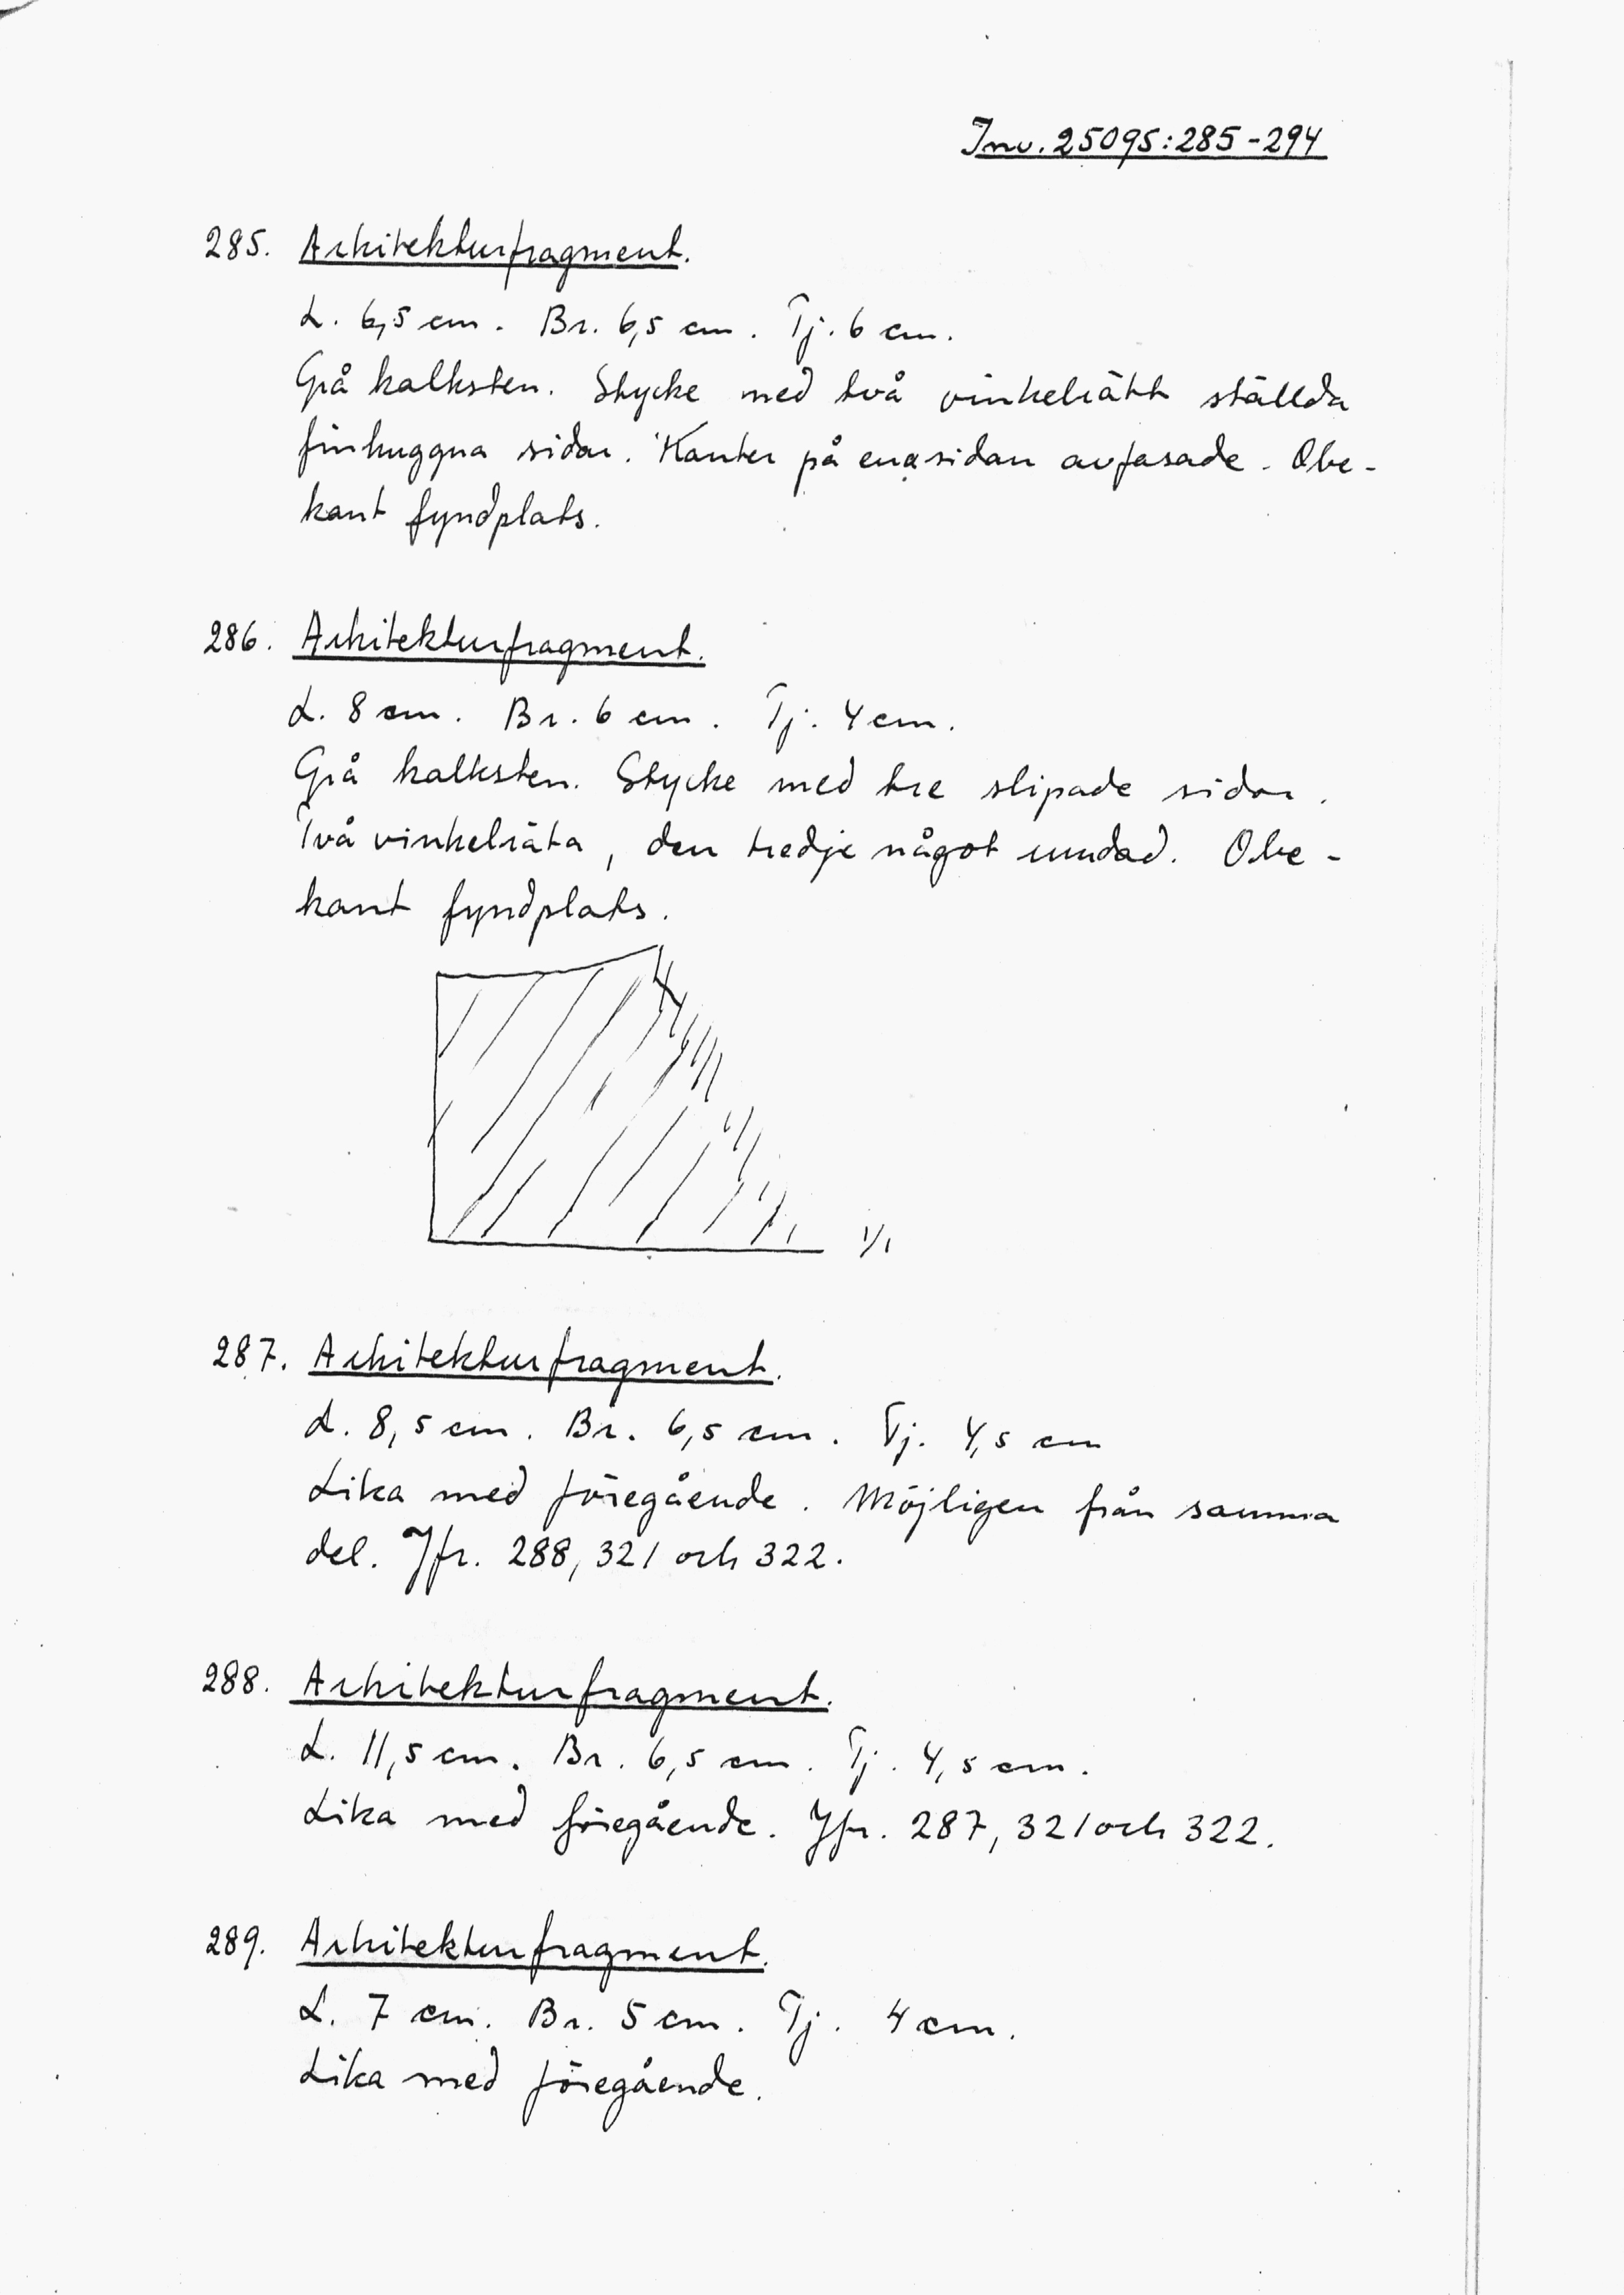 Inv. 25095:285-294
285. Arkitekturfragment.
L. 6,5 cm. Br. 6,5 cm. Tj. 6 cm.
Grå kalksten. Stycke med två vinkelrätt ställda
finhuggna sidor. Kanter på ena sidan avfasade. Obe-
kant fyndplats.
286. Arkitekturfragment.
L. 8 cm. Br. 6 cm. Tj. 4 cm.
Grå kalksten. Stycke med tre slipade sidor.
Två vinkelräta, den tredje något rundad. Obe-
kant fyndplats.
1/1
287. Arkitekturfragment.
L. 8,5 cm. Br. 6,5 cm. Tj. 4,5 cm
Lika med föregående. Möjligen från samma
del. Jfr. 288, 321 och 322.
288. Arkitekturfragment.
L. 11,5 cm. Br. 6,5 cm. Tj. 4,5 cm.
Lika med föregående. Jfr. 287, 321 och 322.
289. Arkitekturfragment.
L. 7 cm. Br. 5 cm. Tj. 4 cm.
Lika med föregående.